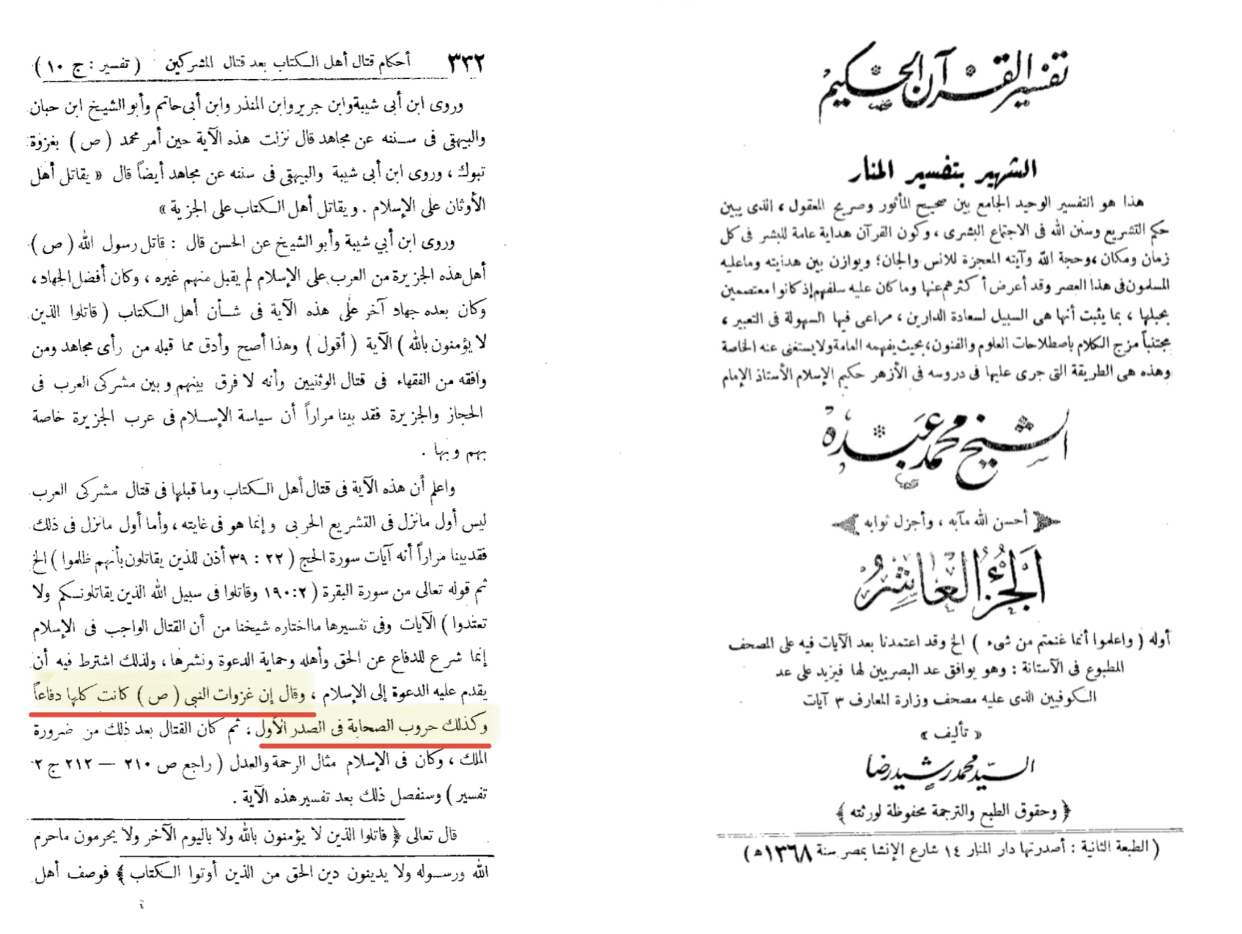 تفسير القرآن الحكيم
الشهير بتفسير المنار
هذا هو التفسير الوحيد الجامع بين صحيح المأثور وصريح المعقول ، الذى يبين
حكم التشريع وسنن الله فى الاجتماع البشرى ، وكون القرآن هداية عامة للبشر فى كل
زمان ومكان ،وحجة الله وآيته المعجزة للانس والجان؛ ويوازن بين هدايته وماعليه
المسلمون فى هذا العصر وقد أعرض أكثرهم عنها وما كان عليه سلفهم إذ كانوا معتصمين
بحبلها ، بما يثبت أنها هى السبيل لسعادة الدارين ، مراعى فيها السهولة فى التعبير ،
مجتنباً مزج الكلام باصطلاحات العلوم والفنون، بحيث يفهمه العامة ولا يستغنى عنه الخاصة
وهذه هى الطريقة التى جرى عليها فى دروسه فى الأزهر حكيم الإسلام الأستاذ الإمام
الشيخ محمد عبده
أحسن الله مآبه ، وأجزل ثوابه
الجزء العاشر
أوله ( واعلموا أنما غنمتم من شىء ) الخ وقد اعتمدنا بعد الآيات فيه على المصحف
المطبوع فى الآستانة : وهو يوافق عد البصريين لها فيزيد على عد
الكوفيين الذى عليه مصحف وزارة المعارف ٣ آيات
« تأليف »
السيد محمد رشيد رضا
﴿ وحقوق الطبع والترجمة محفوظة لورثته ﴾
( الطبعة الثانية : أصدرتها دار المنار ١٤ شارع الإنشا بمصر سنة ١٣٦٨ﻫ )
٣٣٢ أحكام قتال أهل الكتاب بعد قتال المشركين ( تفسير : ج ١٠ )
وروى ابن أبى شيبة وابن جرير وابن المنذر وابن أبى حاتم وأبو الشيخ ابن حبان
والبيهقى فى سننه عن مجاهد قال نزلت هذه الآية حين أمر محمد ( ص ) بغزوة
تبوك ، وروى ابن أبى شيبة والبيهقى فى سننه عن مجاهد أيضاً قال « يقاتل أهل
الأوثان على الإسلام . ويقاتل أهل الكتاب على الجزية »
وروى ابن أبي شيبة وأبو الشيخ عن الحسن قال : قاتل رسول الله ( ص )
أهل هذه الجزيرة من العرب على الإسلام لم يقبل منهم غيره ، وكان أفضل الجهاد ،
وكان بعده جهاد آخر على هذه الآية فى شأن أهل الكتاب ( قاتلوا الذين
لا يؤمنون بالله ) الآية ( أقول ) وهذا أصح وأدق مما قبله من رأى مجاهد ومن
وافقه من الفقهاء فى قتال الوثنيين وأنه لا فرق بينهم و بين مشركى العرب فى
الحجاز والجزيرة فقد بينا مراراً أن سياسة الإسلام فى عرب الجزيرة خاصة
بهم وبها .
واعلم أن هذه الآية فى قتال أهل الكتاب وما قبلها فى قتال مشركى العرب
ليس أول مانزل فى التشريع الحربى و إنما هو فى غايته ، وأما أول مانزل فى ذلك
فقد بينا مراراً أنه آيات سورة الحج ( ٢٢ : ٣٩ أذن للذين يقاتلون بأنهم ظلموا ) الخ
ثم قوله تعالى من سورة البقرة ( ١٩٠:٢ وقاتلوا فى سبيل الله الذين يقاتلونكم ولا
تعتدوا ) الآيات وفى تفسيرها مااختاره شيخنا من أن القتال الواجب فى الإسلام
إنما شرع للدفاع عن الحق وأهله وحماية الدعوة ونشرها ، ولذلك اشترط فيه أن
يقدم عليه الدعوة إلى الإسلام ، وقال إن غزوات النبى ( ص ) كانت كلها دفاعاً
وكذلك حروب الصحابة فى الصدر الأول ، ثم كان القتال بعد ذلك من ضرورة
الملك ، وكان فى الإسلام مثال الرحمة والعدل ( راجع ص ٢١٠ — ٢١٢ ج ٢
تفسير ) وسنفصل ذلك بعد تفسير هذه الآية .
قال تعالى ﴿ قاتلوا الذين لا يؤمنون بالله ولا باليوم الآخر ولا يحرمون ماحرم
الله ورسوله ولا يدينون دين الحق من الذين أوتوا الكتاب ﴾ فوصف أهل